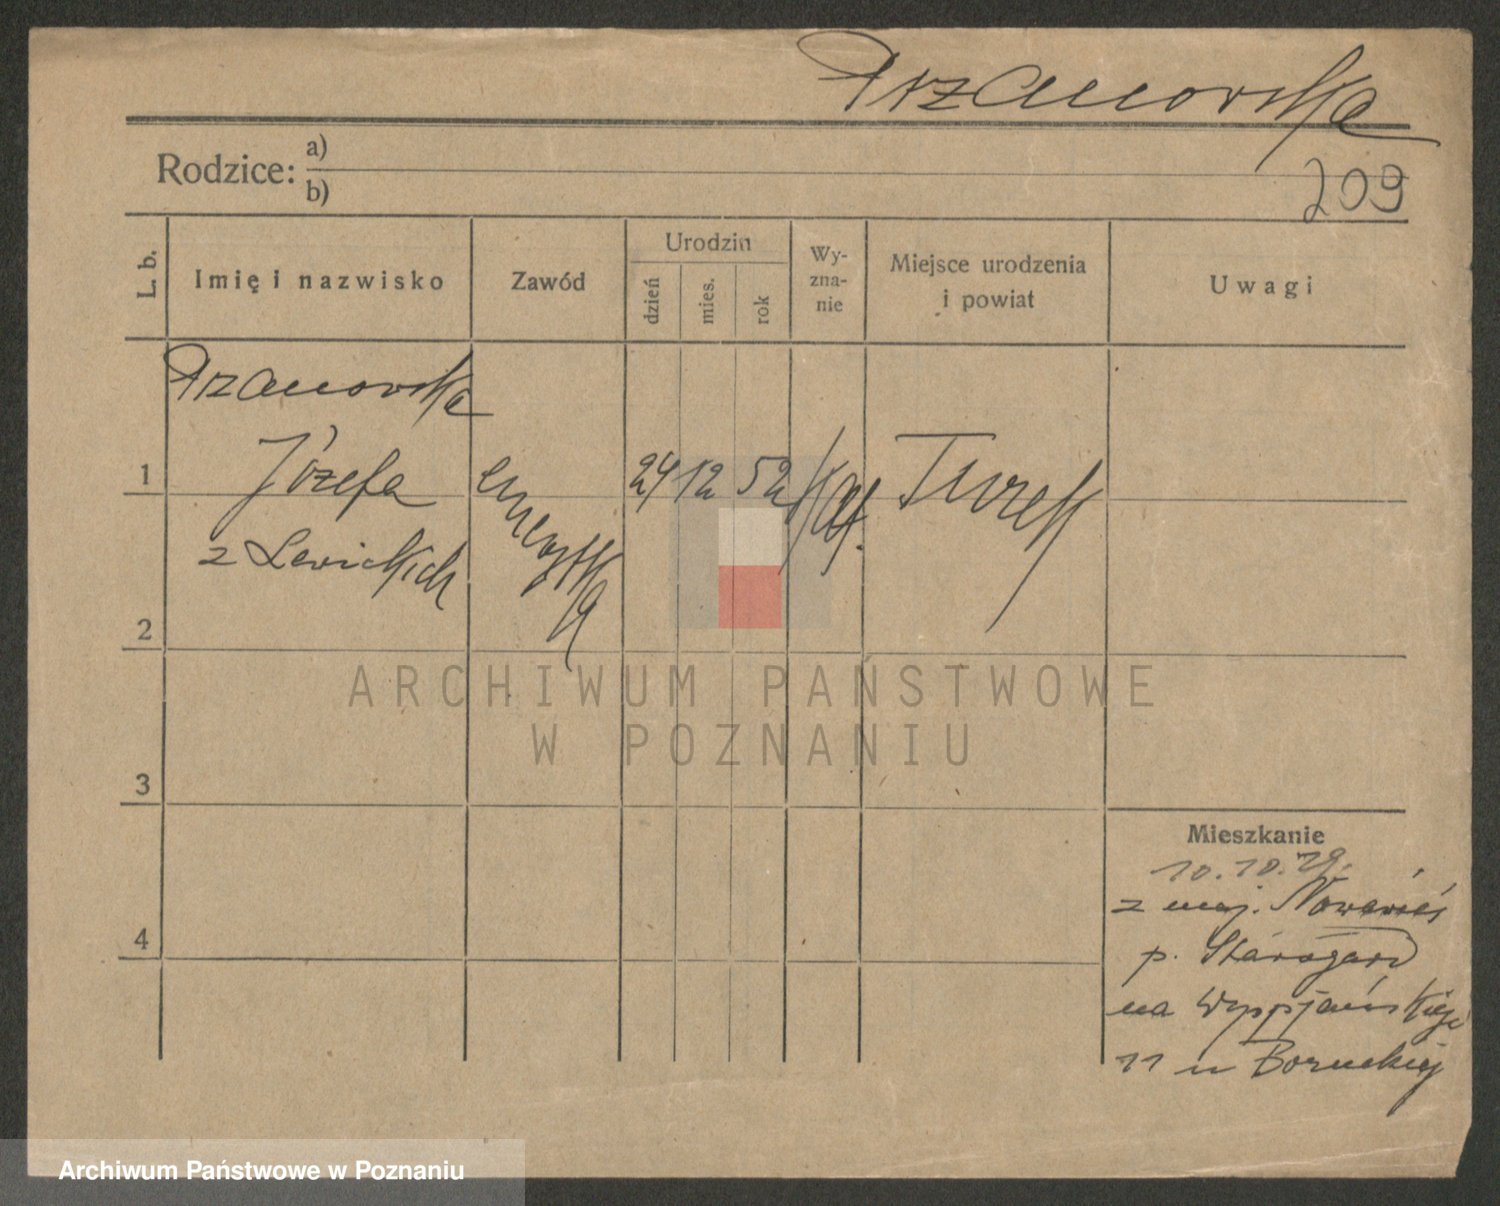 Przanowska
Rodzice: a)
b)
209
L. b.
Imię i nazwisko
Zawód
Urodzin
dzień
mies.
rok
Wy-
zna-
nie
Miejsce urodzenia
i powiat
Uwagi
Przanowska
1
Józefa
emerytka
24
12
52
kat.
Turek
z Lewickich
2
ARCHIWUM PAŃSTWOWE
W POZNANIU
3
Mieszkanie
10.10.29.
z maj. Nowawieś
4
p. Starogard
na Wyspjańskiego
11 u Boruckiej
Archiwum Państwowe w Poznaniu